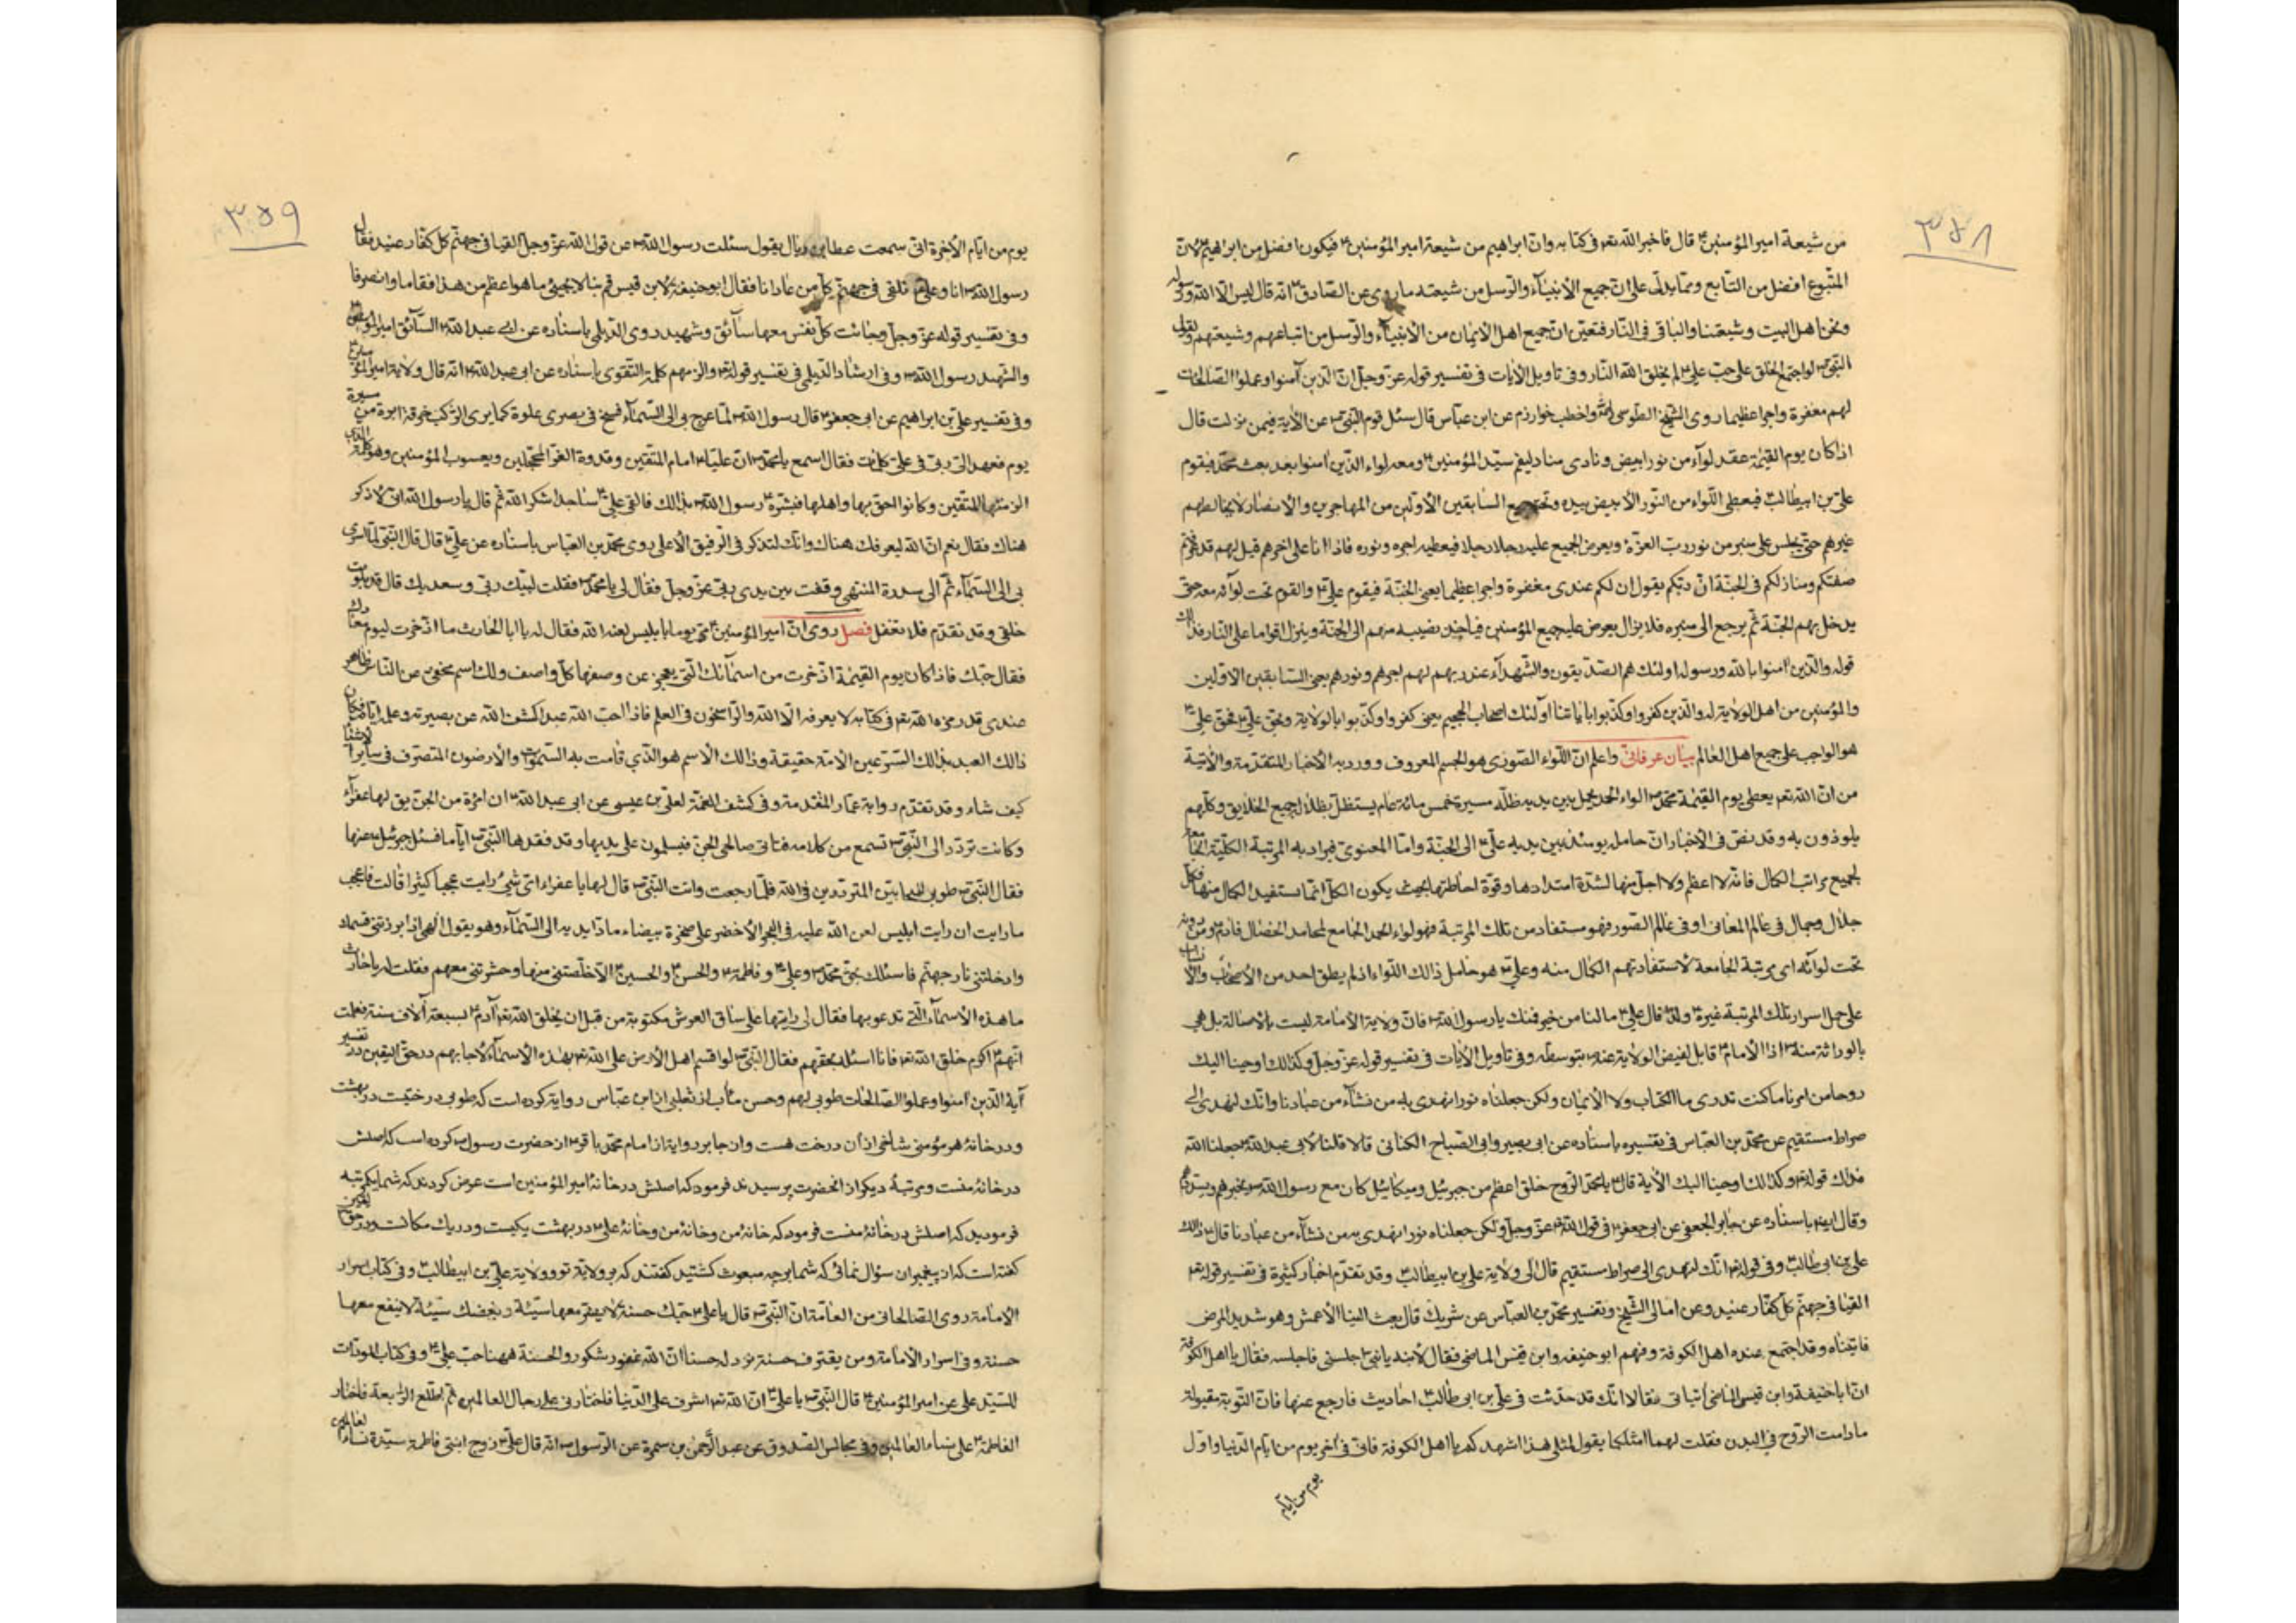 ٣٥٨
من شيعة امير المؤمنين ع قال فاخبر الله تعم فى كتابه وان ابراهيم من شيعة امير المؤمنين ع فيكون افضل من ابراهيم ع لان
المتبوع افضل من التابع ومما يدل على ان جميع الأنبياء والرسل من شيعته ما روى عن الصادق ع انه قال ليس الا الله ورسوله
ونحن اهل البيت وشيعتنا والباقى فى النار فتعين ان جميع اهل الايمان من الأنبياء والرسل من اتباعهم وشيعتهم ولقول
النبى ص لو اجتمع الخلق على حب على ع لم يخلق الله النار وفى تاويل الأيات فى تفسير قوله عز وجل ان الذين آمنوا وعملوا الصالحات
لهم مغفرة واجرا عظيما روى الشيخ الطوسى واخطب خوارزم عن ابن عباس قال سئل قوم النبى ص عن الأية فيمن نزلت قال
اذا كان يوم القيمة عقد لواء من نور ابيض ونادى مناد ليقم سيد المؤمنين ومعه لواء الذين امنوا بعد بعث محمد فيقوم
على بن ابيطالب فيعطى اللواء من النور الأبيض بيده وتحته جميع السابقين الأولين من المهاجرين والأنصار لا يخالطهم
غيرهم حتى يجلس على منبر من نور رب العزة ويعرض الجميع عليه رجلا رجلا فيعطيه اجره ونوره فاذا اتى على اخرهم قيل لهم قد عرفتم
صفتكم ومنازلكم فى الجنة ان ربكم يقول ان لكم عندى مغفرة واجرا عظيما يعنى الجنة فيقوم على ع والقوم تحت لوائه معه حتى
يدخل بهم الجنة ثم يرجع الى منبره فلا يزال يعرض عليه جميع المؤمنين فياخذ نصيبه منهم الى الجنة وينزل اقواما على النار فذالك
قوله والذين امنوا بالله ورسوله اولئك هم الصديقون والشهداء عند ربهم لهم اجرهم ونورهم يعنى السابقين الاولين
والمؤمنين من اهل الولاية له والذين كفروا وكذبوا باياتنا اولئك اصحاب الجحيم يعنى كفروا وكذبوا بالولاية وبحق على ع فحق على ع
هو الواجب على جميع اهل العالم بيان عرفانى واعلم ان اللواء الصورى هو الجسم المعروف وورد به الأخبار المتقدمة والأتية
من ان الله تعم يعطى يوم القيمة محمد ص لواء الحمد يحمل بين يديه ظله مسيرة خمس مائة عام يستظل بظله جميع الخلايق وكلهم
يلوذون به وقد نص فى الأخبار ان حامله يومئذ بين يديه على ع الى الجنة واما المعنوى فيراد به المرتبة الكلية الجامعة
لجميع مراتب الكمال فانه لا اعظم ولا اجل منها لشدة امتدادها وقوة احاطتها بحيث يكون الكل انما يستفيد الكمال منها فكل
جلال وجمال فى عالم المعانى او فى عالم الصور فهو مستفاد من تلك المرتبة فهو لواء الحمد الجامع لمحامد الخصال فادم ومن دونه
تحت لوائه اى مرتبة الجامعة لاستفادتهم الكمال منه وعلى ع هو حامل ذالك اللواء اذ لم يطق احد من الأصحاب
على حمل اسرار تلك المرتبة غيره ولذا قال على ع ما لنا من خير فمنك يا رسول الله ص فان ولاية الأمامة ليست بالاصالة بل هى
بالوراثة منه اذا الأمام ع قابل لفيض الولاية عنه بتوسطه وفى تاويل الأيات فى تفسير قوله عز وجل وكذالك اوحينا اليك
روحا من امرنا ما كنت تدرى ما الكتاب ولا الأيمان ولكن جعلناه نورا نهدى به من نشاء من عبادنا وانك لتهدى الى
صراط مستقيم عن محمد بن العباس فى تفسيره باسناده عن ابى بصير وابى الصباح الكنانى قالا قلنا لأبى عبد الله جعلنا الله
فداك قوله تع وكذالك اوحينا اليك الأية قال يا محمد الروح خلق اعظم من جبرئيل وميكائيل كان مع رسول الله ص يخبرهم ويسددهم
وقال ايضا باسناده عن جابر الجعفى عن ابى جعفر ع فى قول الله عز وجل ولكن جعلناه نورا نهدى به من نشاء من عبادنا قال ذالك
على بن ابى طالب وفى قوله انك لتهدى الى صراط مستقيم قال الى ولاية على بن ابيطالب ع وقد تقدم اخبار كثيرة فى تفسير قوله تع
القيا فى جهنم كل كفار عنيد وعن امالى الشيخ وتفسير محمد بن العباس عن شريك قال بعث الينا الأعمش وهو شديد المرض
فاتيناه وقد اجتمع عنده اهل الكوفة وفيهم ابو حنيفه وابن قيس الماضى فقال لابنه يا بنى اجلسنى فاجلسه فقال يا اهل الكوفة
ان ابا حنيفة وابن قيس الماضى اتيانى فقالا انك قد حدثت فى على بن ابى طالب ع احاديث فارجع عنها فان التوبة مقبولة
ما دامت الروح فى البدن فقلت لهما امثلكما يقول لمثلى هذا اشهدكم يا اهل الكوفة فانى فى آخر يوم من ايام الدنيا واول
يوم من ايام
٣٥٩
يوم من ايام الأخرة انى سمعت عطا بن رياح يقول سئلت رسول الله ص عن قول الله عز وجل القيا فى جهنم كل كفار عنيد فقال
رسول الله ص انا وعلى ع نلقى فى جهنم كل من عادانا فقال ابو حنيفة لابن قيس قم بنا لا يجيئ ما هو اعظم من هذا فقاما وانصرفا
وفى تفسير قوله عز وجل وجائت كل نفس معها سائق وشهيد روى الديلمى باسناده عن ابى عبد الله ع السائق امير المؤمنين ع
والشهيد رسول الله ص وفى ارشاد الديلمى فى تفسير قوله تع والزمهم كلمة التقوى باسناده عن ابى عبد الله ع انه قال ولاية امير المؤمنين ع
وفى تفسير على بن ابراهيم عن ابى جعفر ع قال رسول الله ص لما عرج بى الى السماء فسح فى بصرى غلوة كما يرى الراكب خرقة ابرة من مسيرة
يوم فعهد الى ربى فى على كلمات فقال اسمع يا محمد ان عليا امام المتقين وقدوة الغر المحجلين ويعسوب المؤمنين وهو كلمة التى
الزمتها المتقين وكانوا احق بها واهلها فبشره رسول الله ص بذالك فالقى على ع ساجدا شكرا لله ثم قال يا رسول الله انى لأذكر
هناك فقال نعم ان الله ليعرفك هناك وانك لتذكر فى الرفيق الأعلى روى محمد بن العباس باسناده عن على ع قال قال النبى لما اسرى
بى الى السماء ثم الى سدرة المنتهى وقفت بين يدى ربى عز وجل فقال لى يا محمد ص فقلت لبيك ربى وسعديك قال قد بلوت
خلقى وقد تقدم فلا تغفل فصل روى ان امير المؤمنين ع مر يوما بابليس لعنه الله فقال له يا ابا الحارث ما ادخرت ليوم معادك
فقال حبك فاذا كان يوم القيمة ادخرت من اسمائك التى يعجز عن وصفها كل واصف ولك اسم مخفى عن الناس ظاهر
عندى قد رمزه الله تعم فى كتابه لا يعرفه الا الله والراسخون فى العلم فاذا احب الله عبدا كشف الله عن بصيرته وعلمه اياه فكان
ذالك العبد بذالك السر عين الأمة حقيقة وذالك الأسم هو الذى قامت به السموات والأرضون المتصرف فى ساير الأشياء
كيف شاء وقد تقدم رواية عمار المتقدمة وفى كشف الغمة لعلى بن عيسى عن ابى عبد الله ع ان امرئة من الجن يق لها عفراء
وكانت تردد الى النبى ص تسمع من كلامه فتاتى صالحى الجن فيسلمون على يديها وقد فقدها النبى ص اياما فسئل جبرئيل عنها
فقال النبى ص طوبى للمتحابين المتوددين فى الله فلما رجعت واتت النبى ص قال لها يا عفراء اى شيئ رايت عجبا كثيرا قالت فاعجب
ما رايت ان رايت ابليس لعن الله عليه فى البحر الأخضر على صخرة بيضاء مادا يديه الى السماء وهو يقول الهى اذا ابررت قسمك
وادخلتنى نار جهنم فاسئلك بحق محمد ص وعلى ع وفاطمة ع والحسن ع والحسين ع الا خلصتنى منها وحشرتنى معهم فقلت له يا حارث
ما هذه الأسماء التى تدعو بها فقال لى رايتها على ساق العرش مكتوبة من قبل ان يخلق الله تع آدم ع بسبعة آلاف سنة فعلمت
انهم اكرم خلق الله تع فانا اسئله بحقهم فقال النبى ص لو اقسم اهل الأرض على الله تع بهذه الأسماء لاجابهم در حق اليقين در تفسير
آية الذين امنوا وعملوا الصالحات طوبى لهم وحسن مئاب از ثعلبى از ابن عباس رواية كرده است كه طوبى درختيست در بهشت
ودر خانهٔ هر مؤمنى شاخى از آن درخت هست واز جابر رواية از امام محمد باقر ع از حضرت رسول ص كرده است كه اصلش
در خانهٔ منست ومرتبهٔ ديكر از انحضرت پرسيدند فرمود كه اصلش در خانهٔ امير المؤمنين است عرض كردند كه شما يكمرتبه
فرموديد كه اصلش در خانهٔ منست فرمود كه خانهٔ من وخانهٔ من وخانهٔ على ع در بهشت يكيست ودر يك مكانست ودر حق اليقين
كفته است كه از پيغمبران سؤال نمائى كه شما بر چه مبعوث كشتيد كفتند كه بر ولاية تو وولاية على بن ابيطالب ع وفى كتاب اسرار
الأمامة روى الصالحانى من العامة ان النبى ص قال يا على ع حبك حسنة لا يضر معها سيئة وبغضك سيئة لا ينفع معها
حسنة وفى اسرار الأمامة ومن يقترف حسنة نزد له حسنا ان الله غفور شكور والحسنة ههنا حب على ع وفى كتاب المودات
للسيد على عن امير المؤمنين ع قال النبى ص يا على ع ان الله تع اشرف على الدنيا فاختارنى على رجال العالمين ثم اطلع الرابعة فاختار
الفاطمة ع على نساء العالمين وفى مجالس الصدوق عن عبد الرحمن بن سمرة عن الرسول ص انه قال على ع زوج ابنتى فاطمة سيدة نساء العالمين